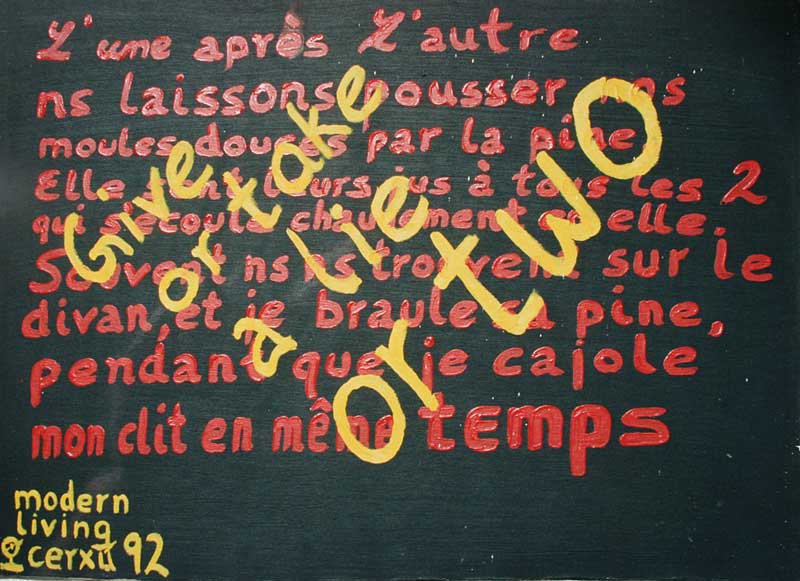 L'une après L'autre
ns laissons pousser nos
moules douces par la pine
Elle leurs jus à tous les 2
qui elle.
Souvent ns ns trouvent sur le
divan, et je braule sa pine,
pendant que je cajole
mon clit en même temps
Give
or take
a lie
or two
modern
living
cerxu 92